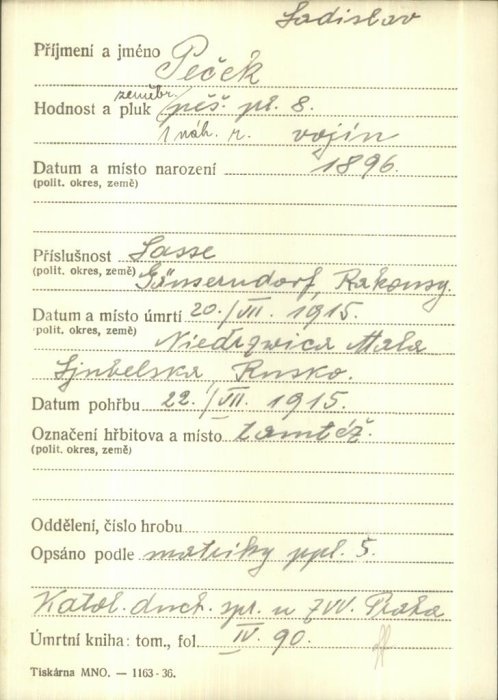 Ladislav
Příjmení a jméno Peček
zeměbr.
Hodnost a pluk pěš. pl. 8.
1 náh. r. vojín
Datum a místo narození 1896.
(polit. okres, země)
Příslušnost Lasse
(polit. okres, země) Gänserndorf, Rakousy.
Datum a místo úmrtí 20./VII. 1915.
(polit. okres, země) Niedrzwica Mala
Ljubelska Rusko.
Datum pohřbu 22./VII. 1915.
Označení hřbitova a místo tamtéž.
(polit. okres, země)
Oddělení, číslo hrobu
Opsáno podle matriky ppl. 5.
Katol. duch. spr. u ZVV. Praha
Úmrtní kniha: tom., fol. IV. 90.
Tiskárna MNO. — 1163-36.